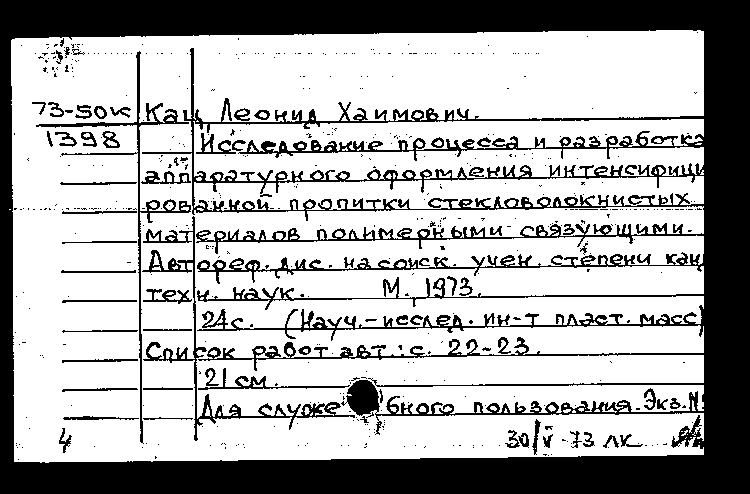 73-50к Кац, Леонид Хаимович.
1398 Исследование процесса и разработка
аппаратурного оформления интенсифици
рованной пропитки стекловолокнистых
материалов полимерными связующими.
Автореф. дис. на соиск. учен. степени кан
техн. наук. М., 1973.
24с. (Науч.-исслед. ин-т пласт. масс)
Список работ авт.: с. 22-23.
21 см.
Для служебного пользования. Экз. №
4 30/V-73 лк